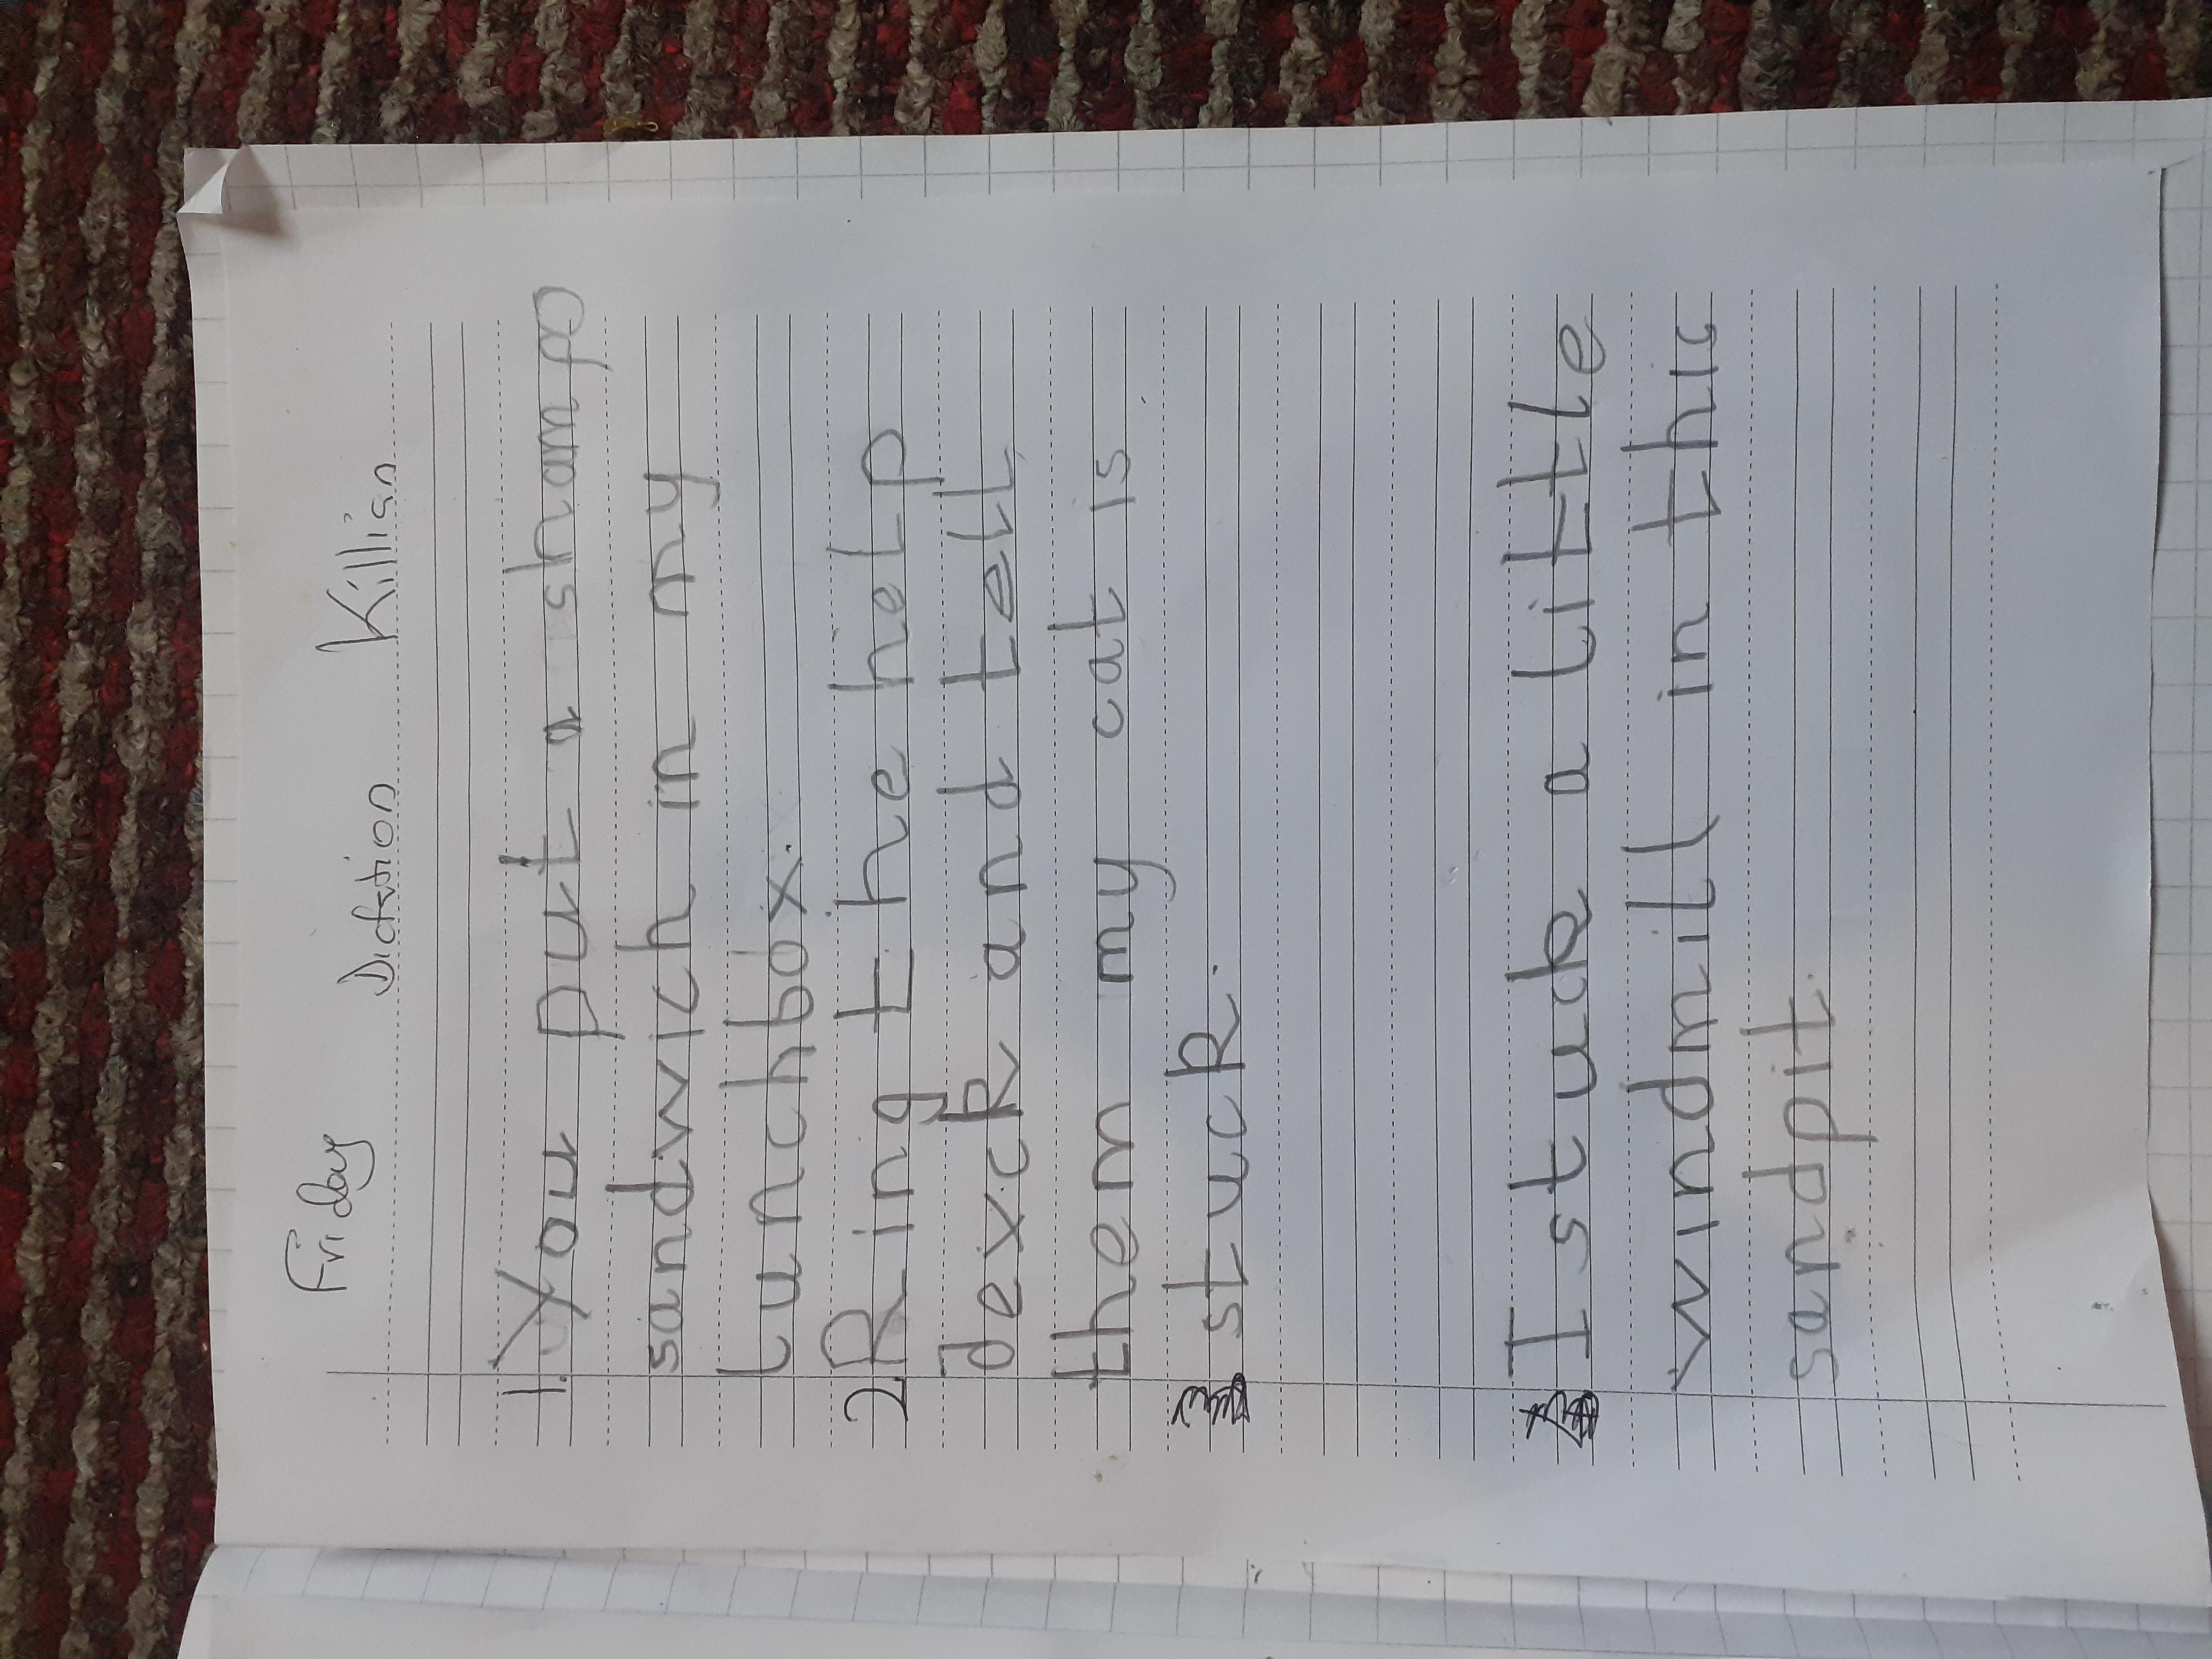 Friday
Dictation Killian
1. You put a shampo
sandwich in my
lunchbox.
2 Ring the help
dexck and tell
them my cat is
stuck.
I stuck a little
windmill in thic
sandpit.